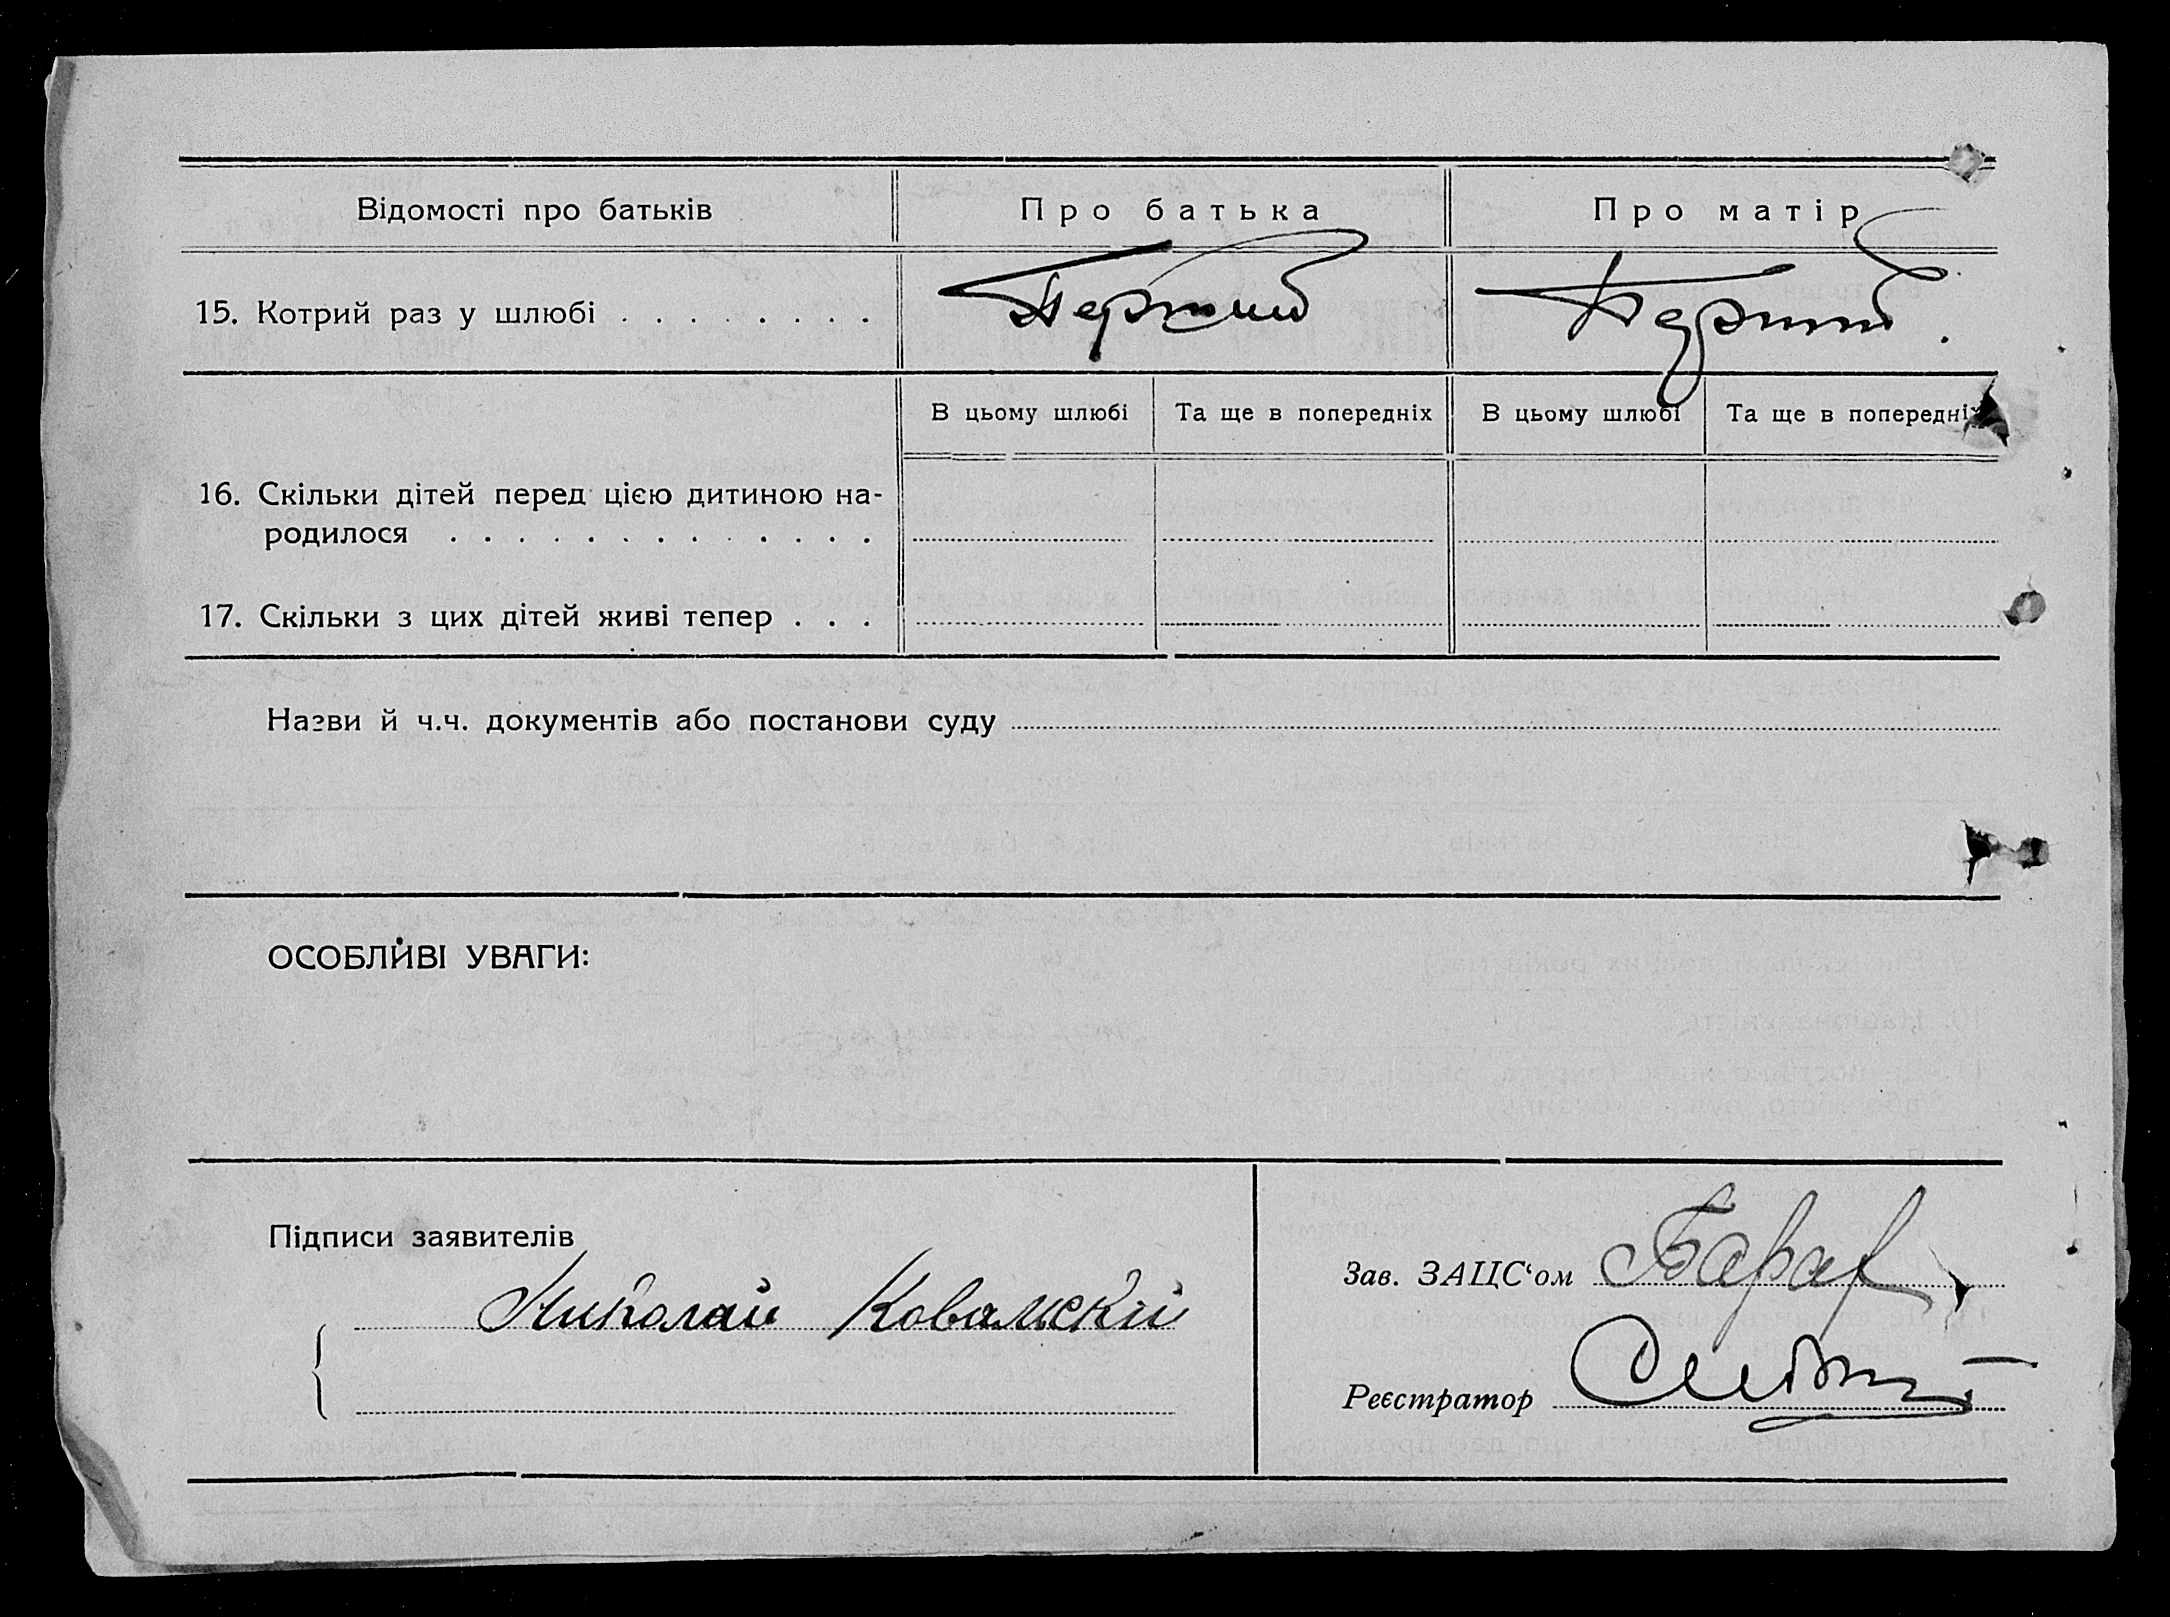 Відомості про батьків Про батька Про матір
15. Котрий раз у шлюбі . . . . . . . . Перший Перший.
В цьому шлюбі Та ще в попередніх В цьому шлюбі Та ще в попередніх
16. Скільки дітей перед цією дитиною на-
родилося . . . . . . . . . . . . .
17. Скільки з цих дітей живі тепер . . .
Назви й ч.ч. документів або постанови суду
ОСОБЛИВІ УВАГИ:
Підписи заявителів
Николай Ковалский
Зав. ЗАЦС‘ом
Реєстратор